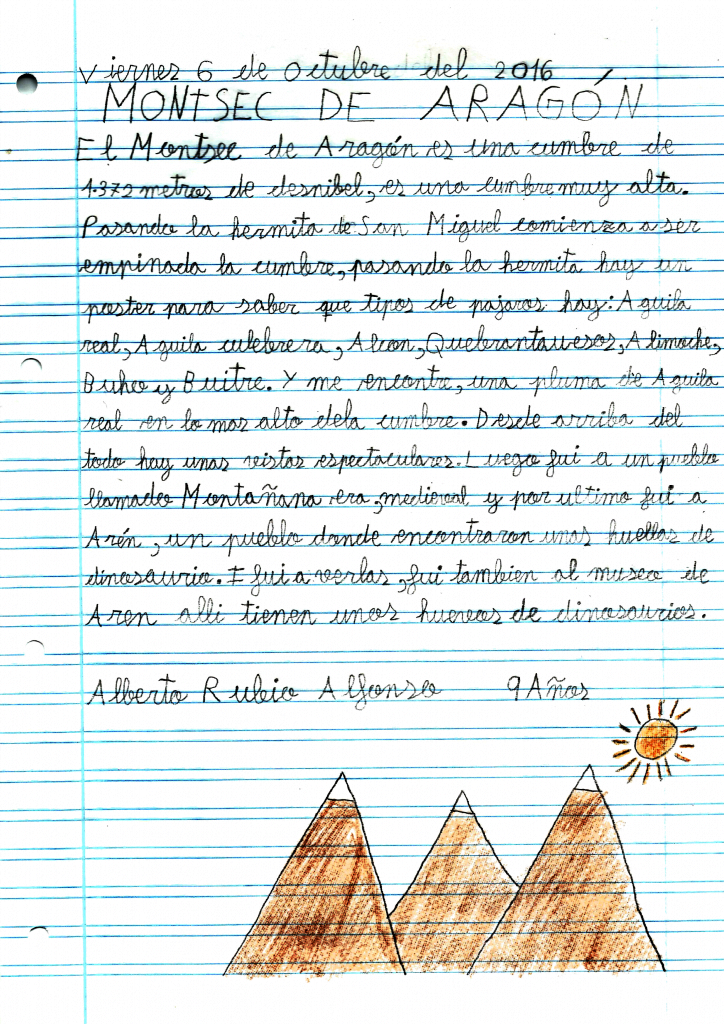 Viernes 6 de Octubre del 2016
MONTSEC DE ARAGÓN
El Montsec de Aragón es una cumbre de
1.372 metros de desnibel, es una cumbre muy alta.
Pasando la hermita de San Miguel comienza a ser
empinada la cumbre, pasando la hermita hay un
poster para saber que tipos de pajaros hay: Aguila
real, Aguila culebrera, Alcon, Quebrantauesos, Alimoche,
Buho y Buitre. Y me encontre, una pluma de Aguila
real en lo mas alto dela cumbre. Desde arriba del
todo hay unas vistas espectaculares. Luego fui a un pueblo
llamado Montañana era, medieval y por ultimo fui a
Arén, un pueblo donde encontraron unas huellas de
dinosaurio. E fui a verlas, fui tambien al museo de
Aren alli tienen unos huevos de dinosaurios.
Alberto Rubio Alfonso 9 Años